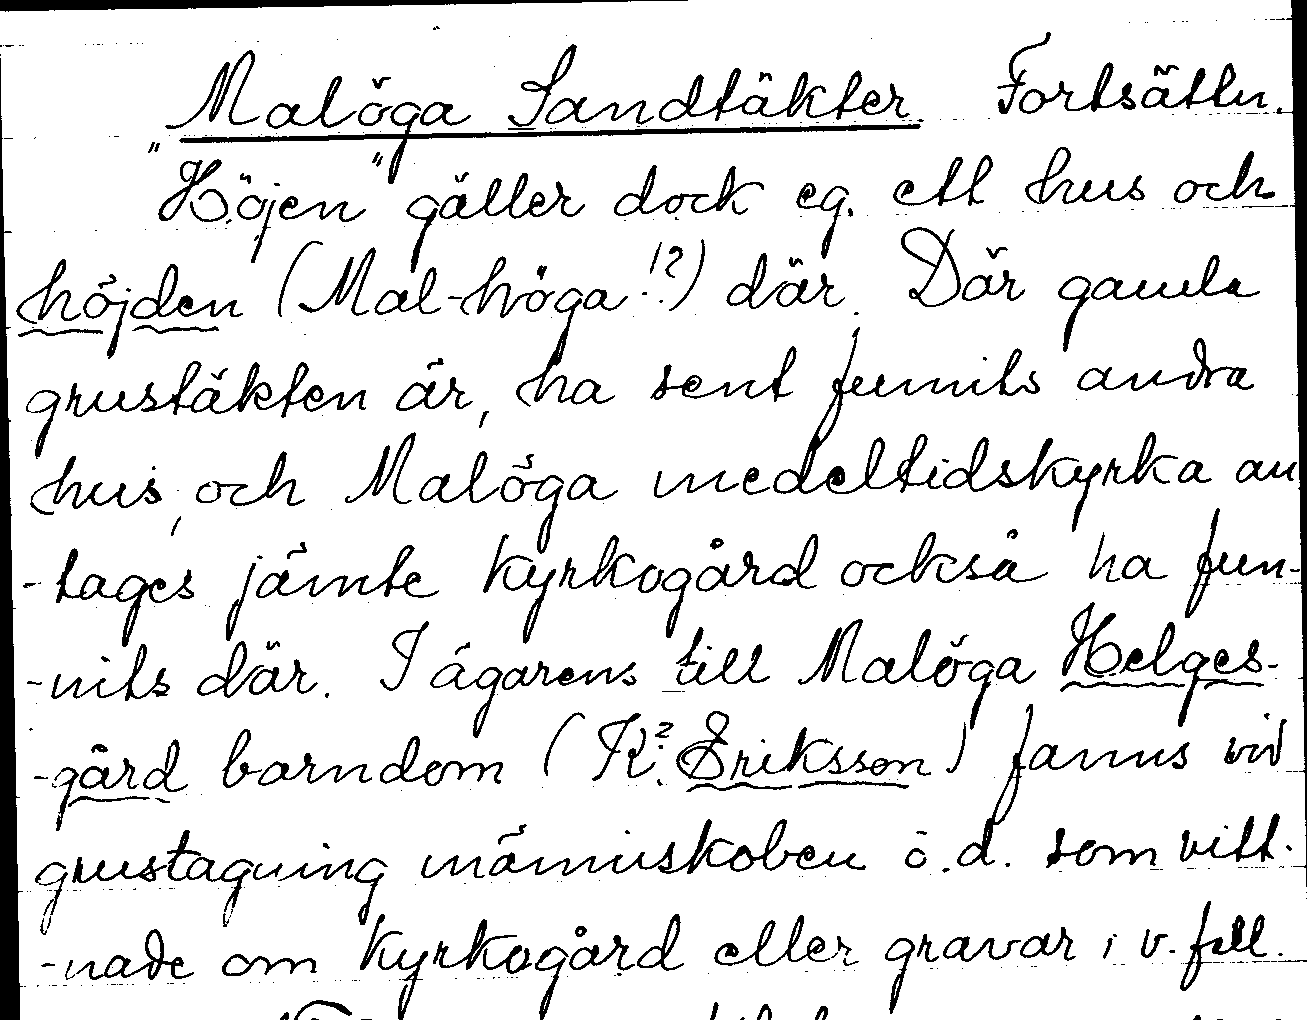 Malöga Sandtäkter. Fortsättn.
"Höjen" gäller dock eg. ett hus och
höjden (Mal-höga!?) där. Där gamla
grustäkten är, ha sent funnits andra
hus, och Malöga medeltidskyrka an
-tages jämte kyrkogård också ha fun-
-nits där. I ägarens till Malöga Helges-
-gård barndom (K? Eriksson) fanns vid
grustagning människoben o.d. som vitt-
-nade om kyrkogård eller gravar i v. fall.